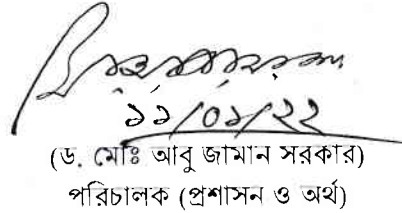 ১১/০১/২২
(ড. মোঃ আবু জামান সরকার)
পরিচালক (প্রশাসন ও অর্থ)